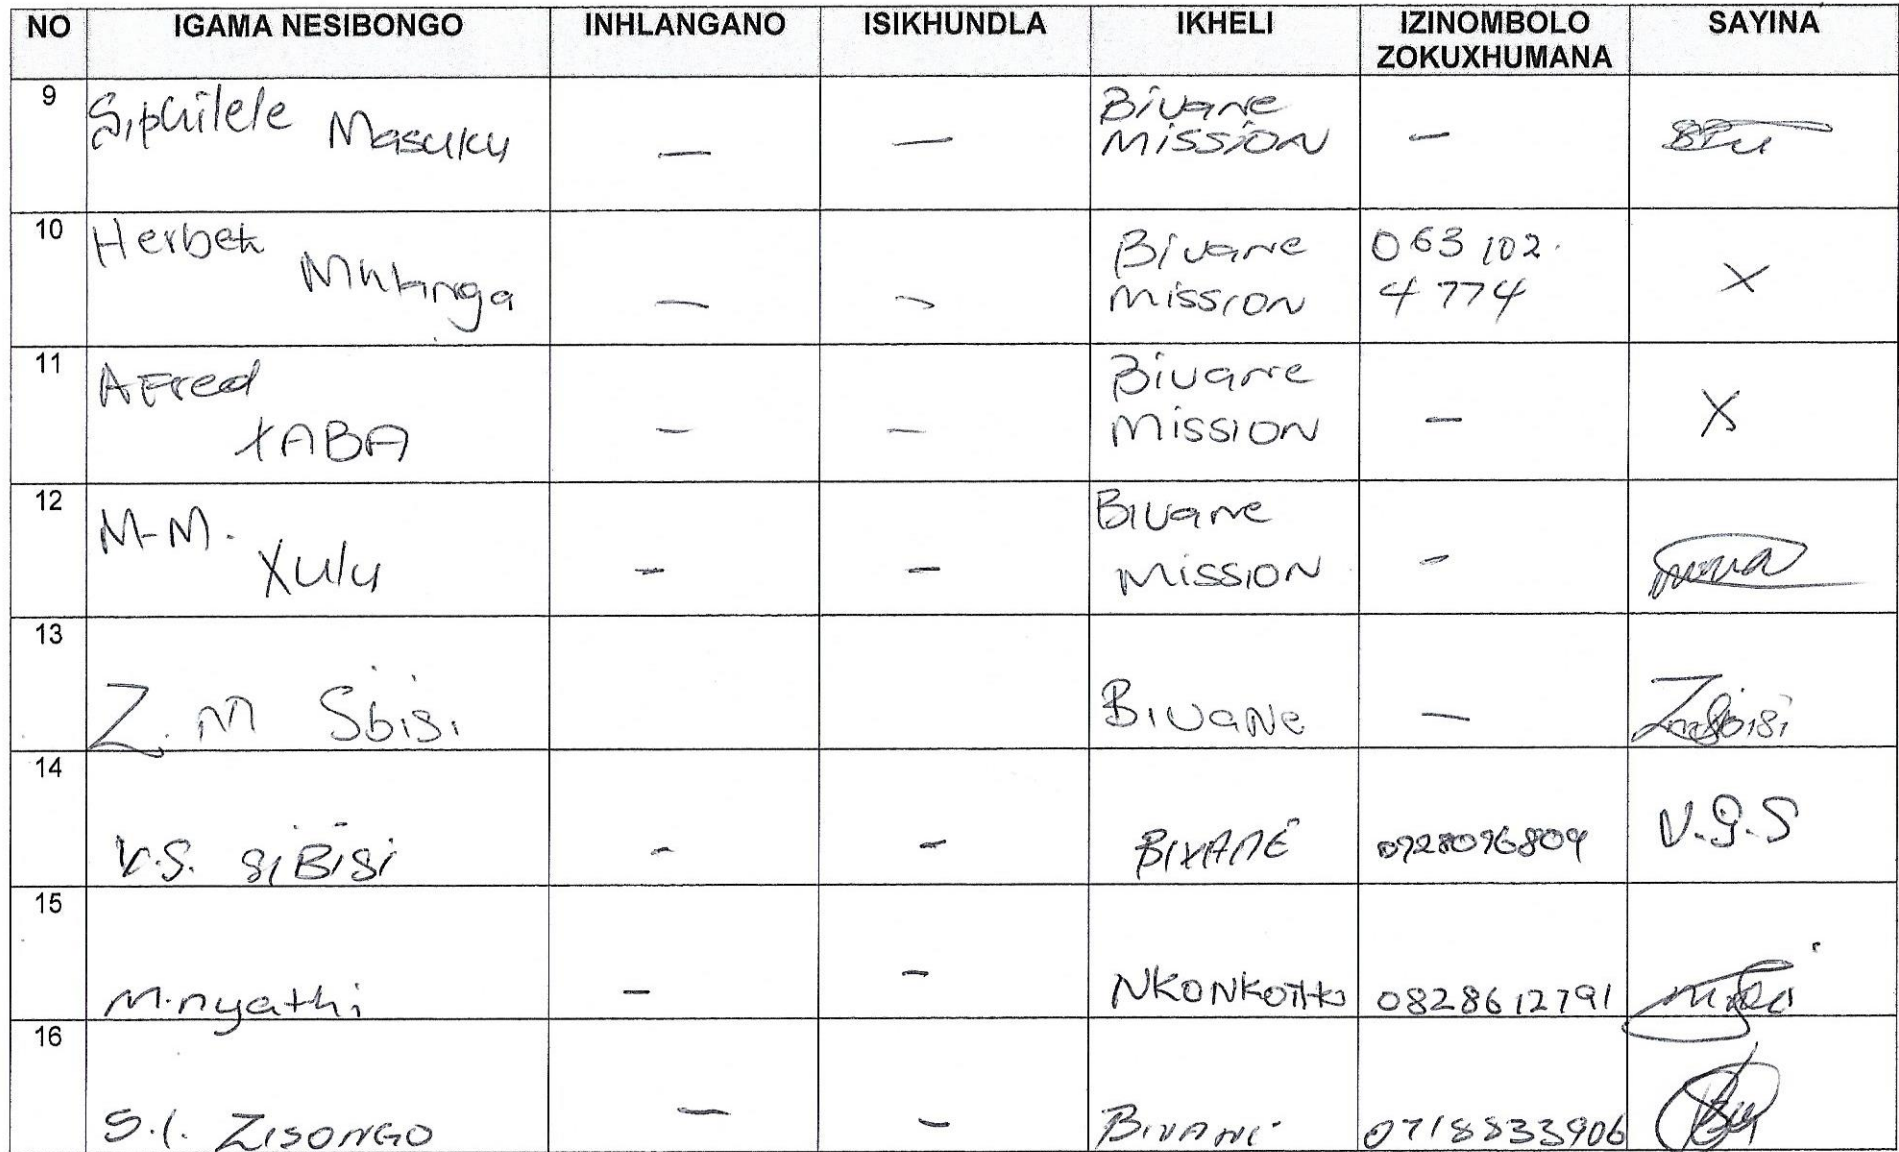 NO IGAMA NESIBONGO INHLANGANO ISIKHUNDLA IKHELI IZINOMBOLO ZOKUXHUMANA SAYINA
9 Siphilele Masuku — — Bivane Mission —
10 Herbet — — Bivane Mission 063 102. 4774 X
11 AFred XABA — — Bivane Mission — X
12 M-M. Xulu - - Bivane Mission -
13 Z. M Sbisi Bivane — Sbisi
14 V.S. SiBiSi - - BIVANE V.S.S
15 M.nyathi - - 0828612791
16 S.I. ZISONGO — - BIVANE 0718833906